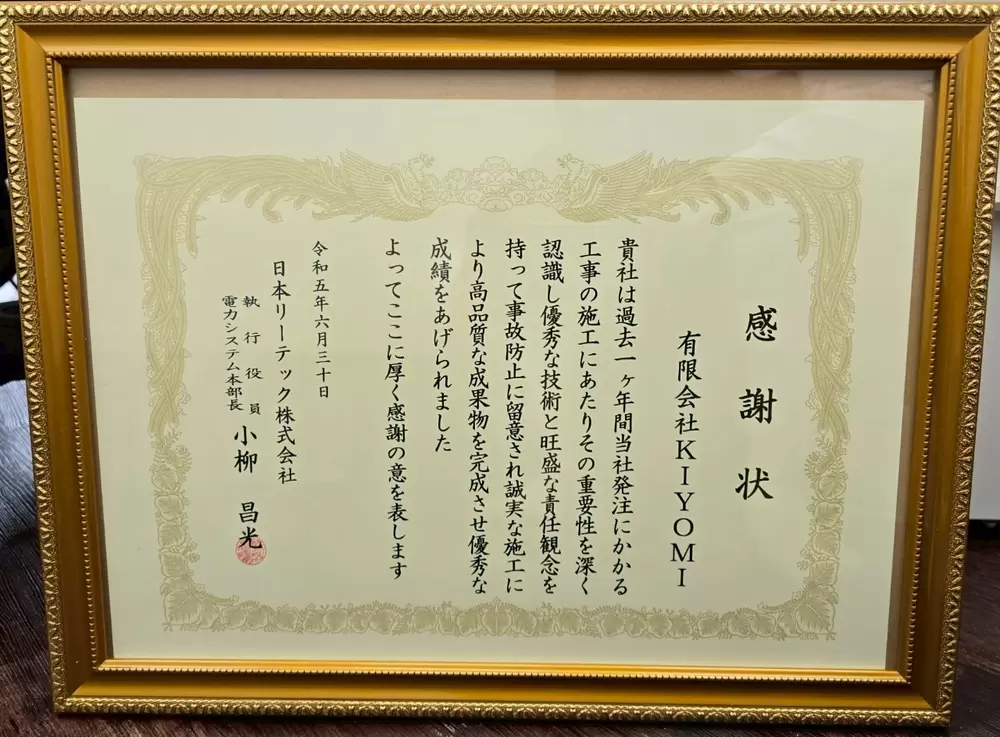 感謝状
有限会社KIYOMI
貴社は過去一ヶ年間当社発注にかかる
工事の施工にあたりその重要性を深く
認識し優秀な技術と旺盛な責任観念を
持って事故防止に留意され誠実な施工に
より高品質な成果物を完成させ優秀な
成績をあげられました
よってここに厚く感謝の意を表します
令和五年六月三十日
日本リーテック株式会社
執行役員
電力システム本部長
小柳昌光